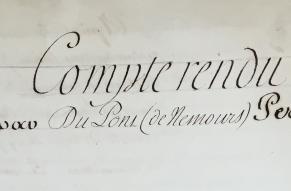 Compte rendu
Du Pont (de Nemours)